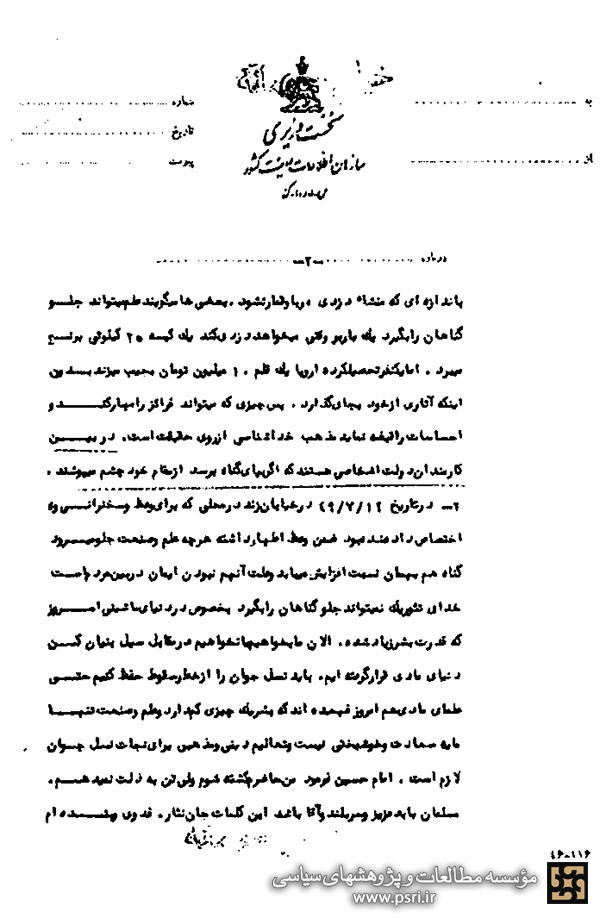 نخست وزیری
سازمان اطلاعات و امنیت کشور
شماره
به
تاریخ
از
پیوست
درباره
-۲-
باندازه ای که منشاء دزدی و ریا و قمار نشود . بعضی ها میگویند علم میتواند جلو
گناهان را بگیرد یک باربر وقتی میخواهد دزدی کند یک کیسه ۲۰ کیلوئی برنج
میبرد . اما یکنفر تحصیلکرده اروپا یک قلم ۱۰ میلیون تومان بجیب میزند بدون
اینکه آثاری از خود بجای گذارد . پس چیزی که میتواند غرائز را مهار کند و
احساسات را تصفیه نماید مذهب خداشناسی از روی حقیقت است. در بین
کارمندان دولت اشخاصی هستند که اگر پای گناه برسد از مقام خود چشم میپوشند .
۲- در تاریخ ۴۹/۷/۱۲ در خیابان زند در محلی که برای وعظ و سخنرانی وی
اختصاص داده شده بود ضمن وعظ اظهار داشته هر چه علم و صنعت جلو میرود
گناه هم بهمان نسبت افزایش مییابد و علت آنهم نبودن ایمان در بین مردم است
خدای تئوریک نمیتواند جلو گناهان را بگیرد بخصوص در دنیای ماشینی امروز
که قدرت بشر زیاد شده . الان ما بخواهیم یا نخواهیم در مقابل سیل بنیان کن
دنیای مادی قرار گرفته ایم. باید نسل جوان را از خطر سقوط حفظ کنیم حتی
علمای مادی هم امروز فهمیده اند که بشر یک چیزی کم دارد و علم و صنعت تنها
مایه سعادت و خوشبختی نیست و تعالیم دینی و مذهبی برای نجات نسل جوان
لازم است . امام حسین فرمود من حاضرم کشته شوم ولی تن به ذلت نمیدهم .
مسلمان باید عزیز و سربلند و آقا باشد این کلمات جان نثار، فدوی و بنده ام
۴۶-۱۱۶
مؤسسه مطالعات و پژوهشهای سیاسی
www.psri.ir